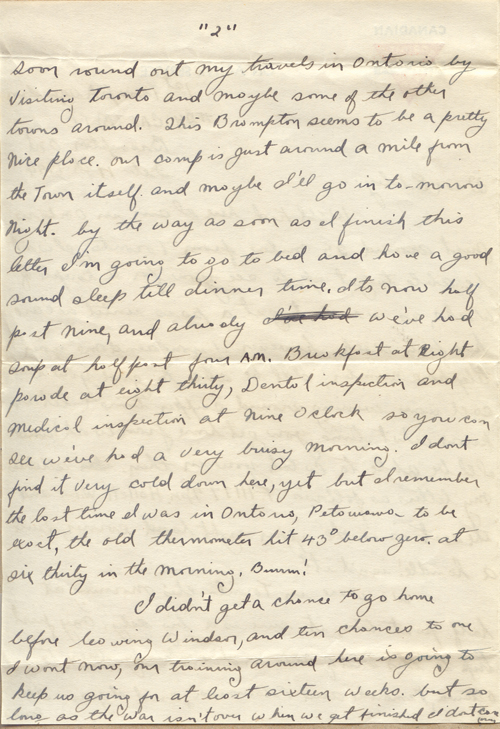 "2"
soon round out my travels in Ontario by
visiting Toronto and maybe some of the other
towns around. This Brampton seems to be a pretty
nice place. our camp is just around a mile from
the Town itself. and maybe I'll go in to-morrow
Night. by the way as soon as I finish this
letter I'm going to go to bed and have a good
sound sleep till dinner time. Its now half
past nine, and already I've had we've had
soup at half past four AM. Breakfast at Eight
parade at eight thirty, Dental inspection and
medical inspection at Nine O'clock so you can
see we've had a very buisy morning. I dont
find it very cold down here, yet but I remember
the last time I was in Ontario, Petawawa to be
exact, the old thermometer hit 43° below zero. at
six thirty in the morning. Burrrr!
I didn't get a chance to go home
before leaving Windsor, and ten chances to one
I wont now, our training around here is going to
keep us going for at least sixteen weeks. but so
long as the war isn't over when we get finished I dont care